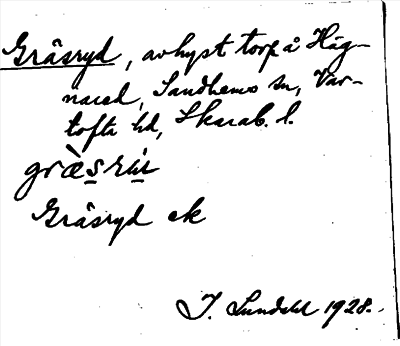 Gråsryd, avhyst torp å Häg-
nared, Sandhems sn, Var-
tofta hd, Skarab. l.
græ̀srúr
Gråsryd ek
J. Lundahl 1928.